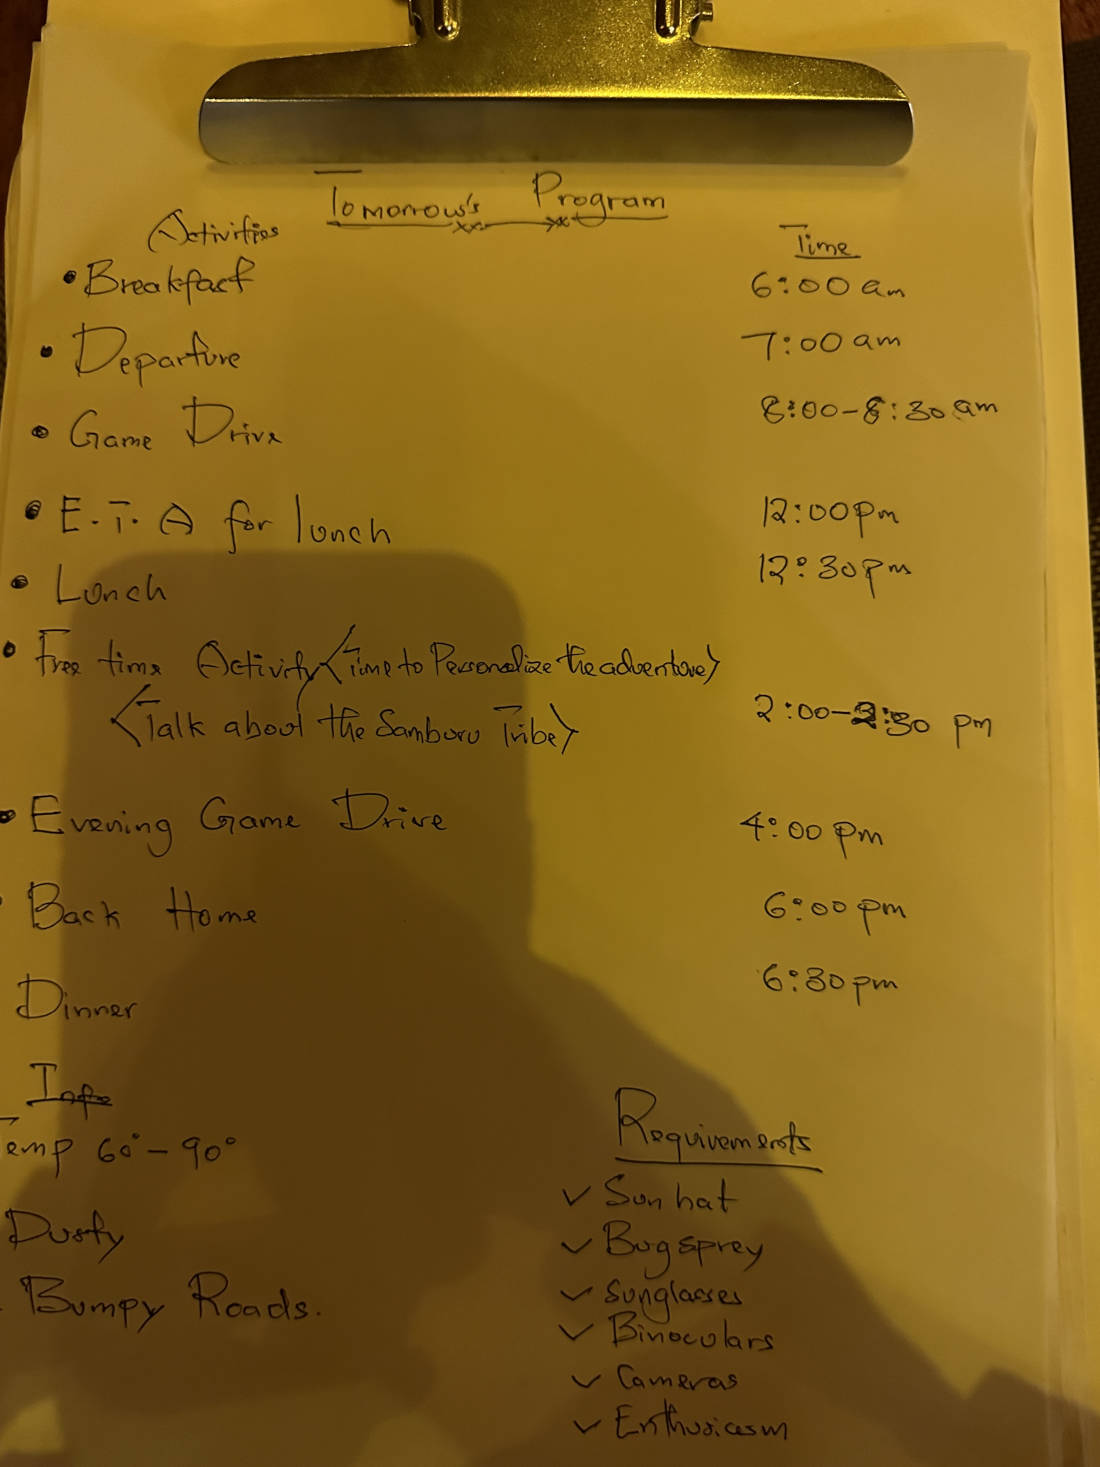 Tomorrow's Program
Activities Time
• Breakfast 6:00 am
• Departure 7:00 am
• Game Drive 8:00-8:30 am
• E.T.A for lunch 12:00pm
• Lunch 12:30pm
• Free time Activity <Time to Personalize the adventure>
<Talk about the Samburu Tribe> 2:00-2:30 pm
• Evening Game Drive 4:00 pm
• Back Home 6:00 pm
Dinner 6:30pm
Info
Temp 60°-90°
Dusty
. Bumpy Roads.
Requirements
✓ Sun hat
✓ Bug sprey
✓ Sunglasses
✓ Binoculars
✓ Cameras
✓ Enthusicasm